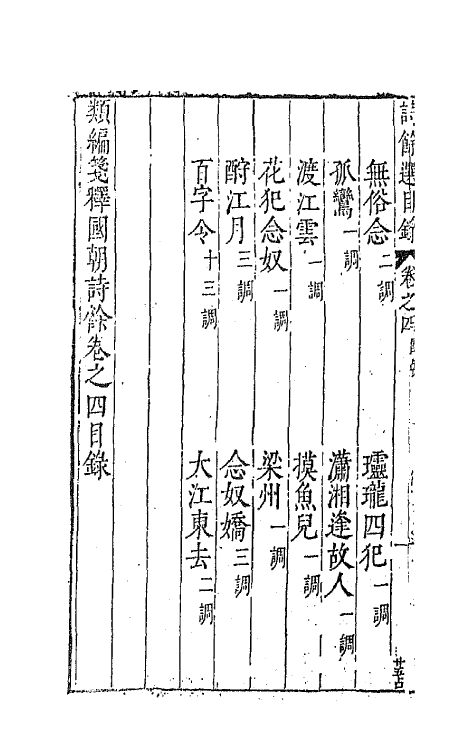 詩餘選目錄 卷之四
無俗念二調 瓏瓏四犯一調
孤鸞一調 瀟湘逢故人一調
渡江雲一調 摸魚兒一調
花犯念奴一調 梁州一調
酹江月三調 念奴嬌三調
百字令十三調 大江東去二調
類編箋釋國朝詩餘卷之四目錄